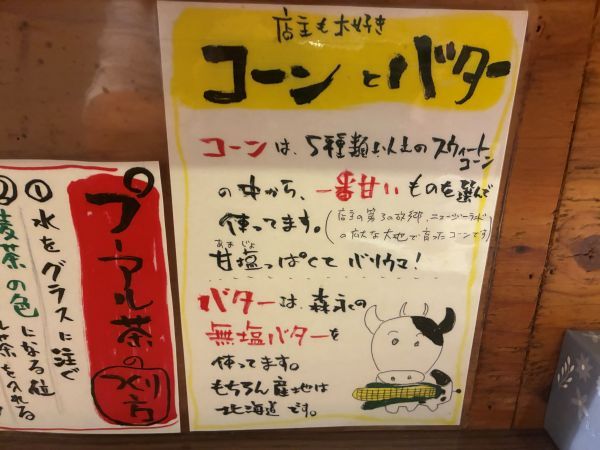 店主も大好き
コーンとバター
コーンは、5種類以上のスウィートコーン
の中から、一番甘いものを選んで
使ってます。(店主の第3の故郷、ニュージーランド
の広大な大地で育ったコーンです)
あま じょ
甘塩っぱくてバリウマ!
バターは、森永の
無塩バターを
使ってます。
もちろん産地は
北海道です。
プーアル茶の
作り方
① 水をグラスに注ぐ
②
麦茶の色になる位